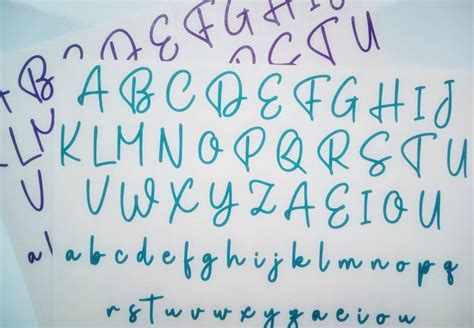 A B C D E F G H I J
K L M N O P Q R S T U
V W X Y Z A E I O U
a b c d e f g h i j k l m n o p q
r s t u v w x y z a e i o u
B C D E F G H I J
S T U
L M
V
a